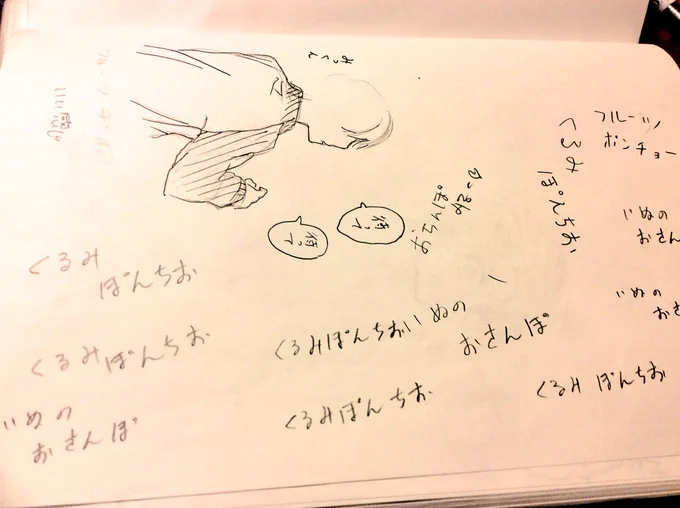 フルーツ
ポンチョー
くるみ
ぽんちお
いぬの
おさん
いぬの
おさ
くるみ ぽんちお
くるみ
ぽんちお
待って
待って
くるみぽんちおいぬの
おさんぽ
くるみぽんちお
くるみ
ぽんちお
くるみぽんちお
いぬの
おさんぽ